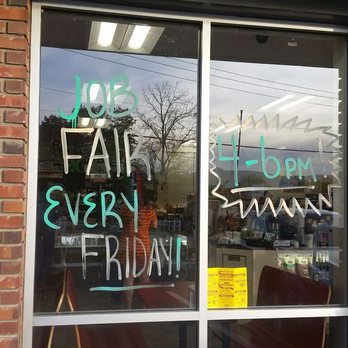 JOB
FAIR
EVERY
FRIDAY!
4-6PM!